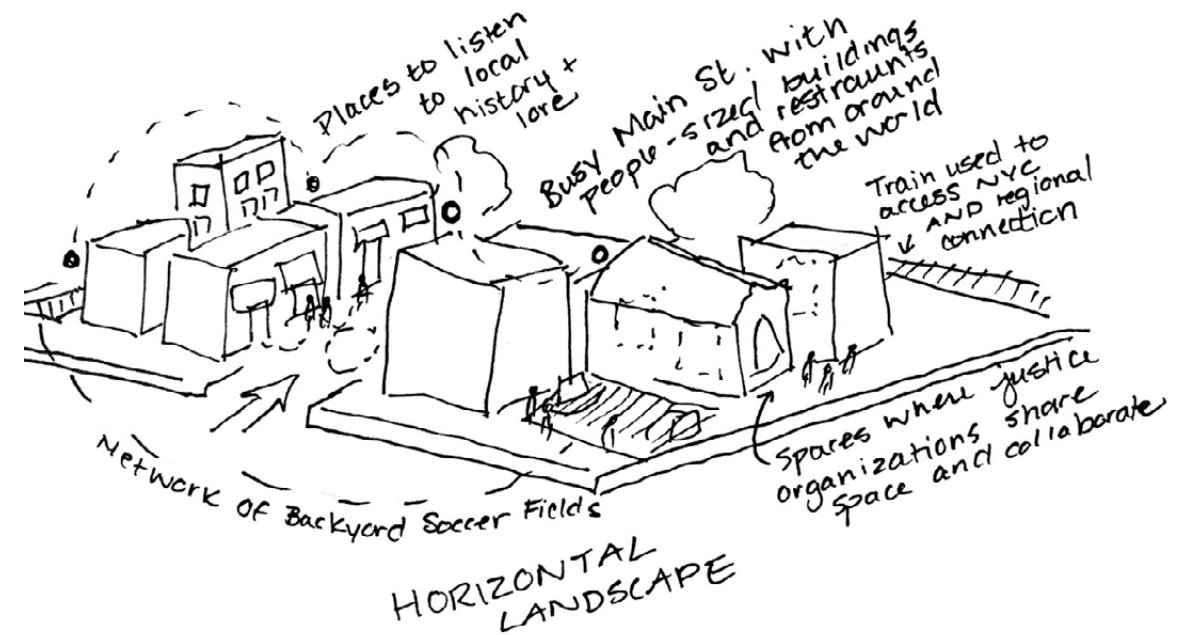 Places to listen
to local
history +
lore
Busy Main St. with
people-sized buildings
and restraunts
from around
the world
Train used to
access NYC
AND regional
connection
Spares where justice
organizations share
space and collaborate
Network of Backyard Soccer Fields
HORIZONTAL
LANDSCAPE